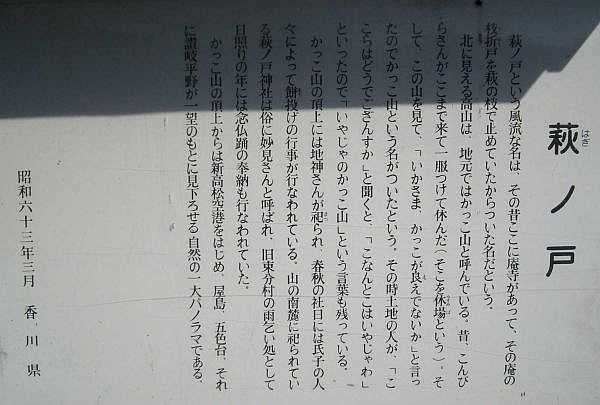 萩ノ戸
はぎ
萩ノ戸という風流な名は、その昔ここに庵寺があって、その庵の
枝折戸を萩の枝で止めていたからついた名だという。
北に見える高山は、地元ではかっこ山と呼んでいる。昔、こんぴ
らさんがここまで来て一服つけて休んだ(そこを休場という)。そ
して、この山を見て、「いかさま、かっこが良えでないか」と言っ
たのでかっこ山という名がついたという。その時土地の人が、「こ
こらはどうでござんすか」と聞くと、「こなんとこはいやじゃわ」
といったので「いやじゃのかっこ山」という言葉も残っている。
かっこ山の頂上には地神さんが祀られ、春秋の社日には氏子の人
々によって餅投げの行事が行なわれている。山の南麓に祀られてい
る萩ノ戸神社は俗に妙見さんと呼ばれ、旧東分村の雨乞い処として
日照りの年には念仏踊の奉納も行なわれていた。
かっこ山の頂上からは新高松空港をはじめ、屋島、五色台、それ
に讃岐平野が一望のもとに見下ろせる自然の一大パノラマである。
昭和六十三年三月 香川県